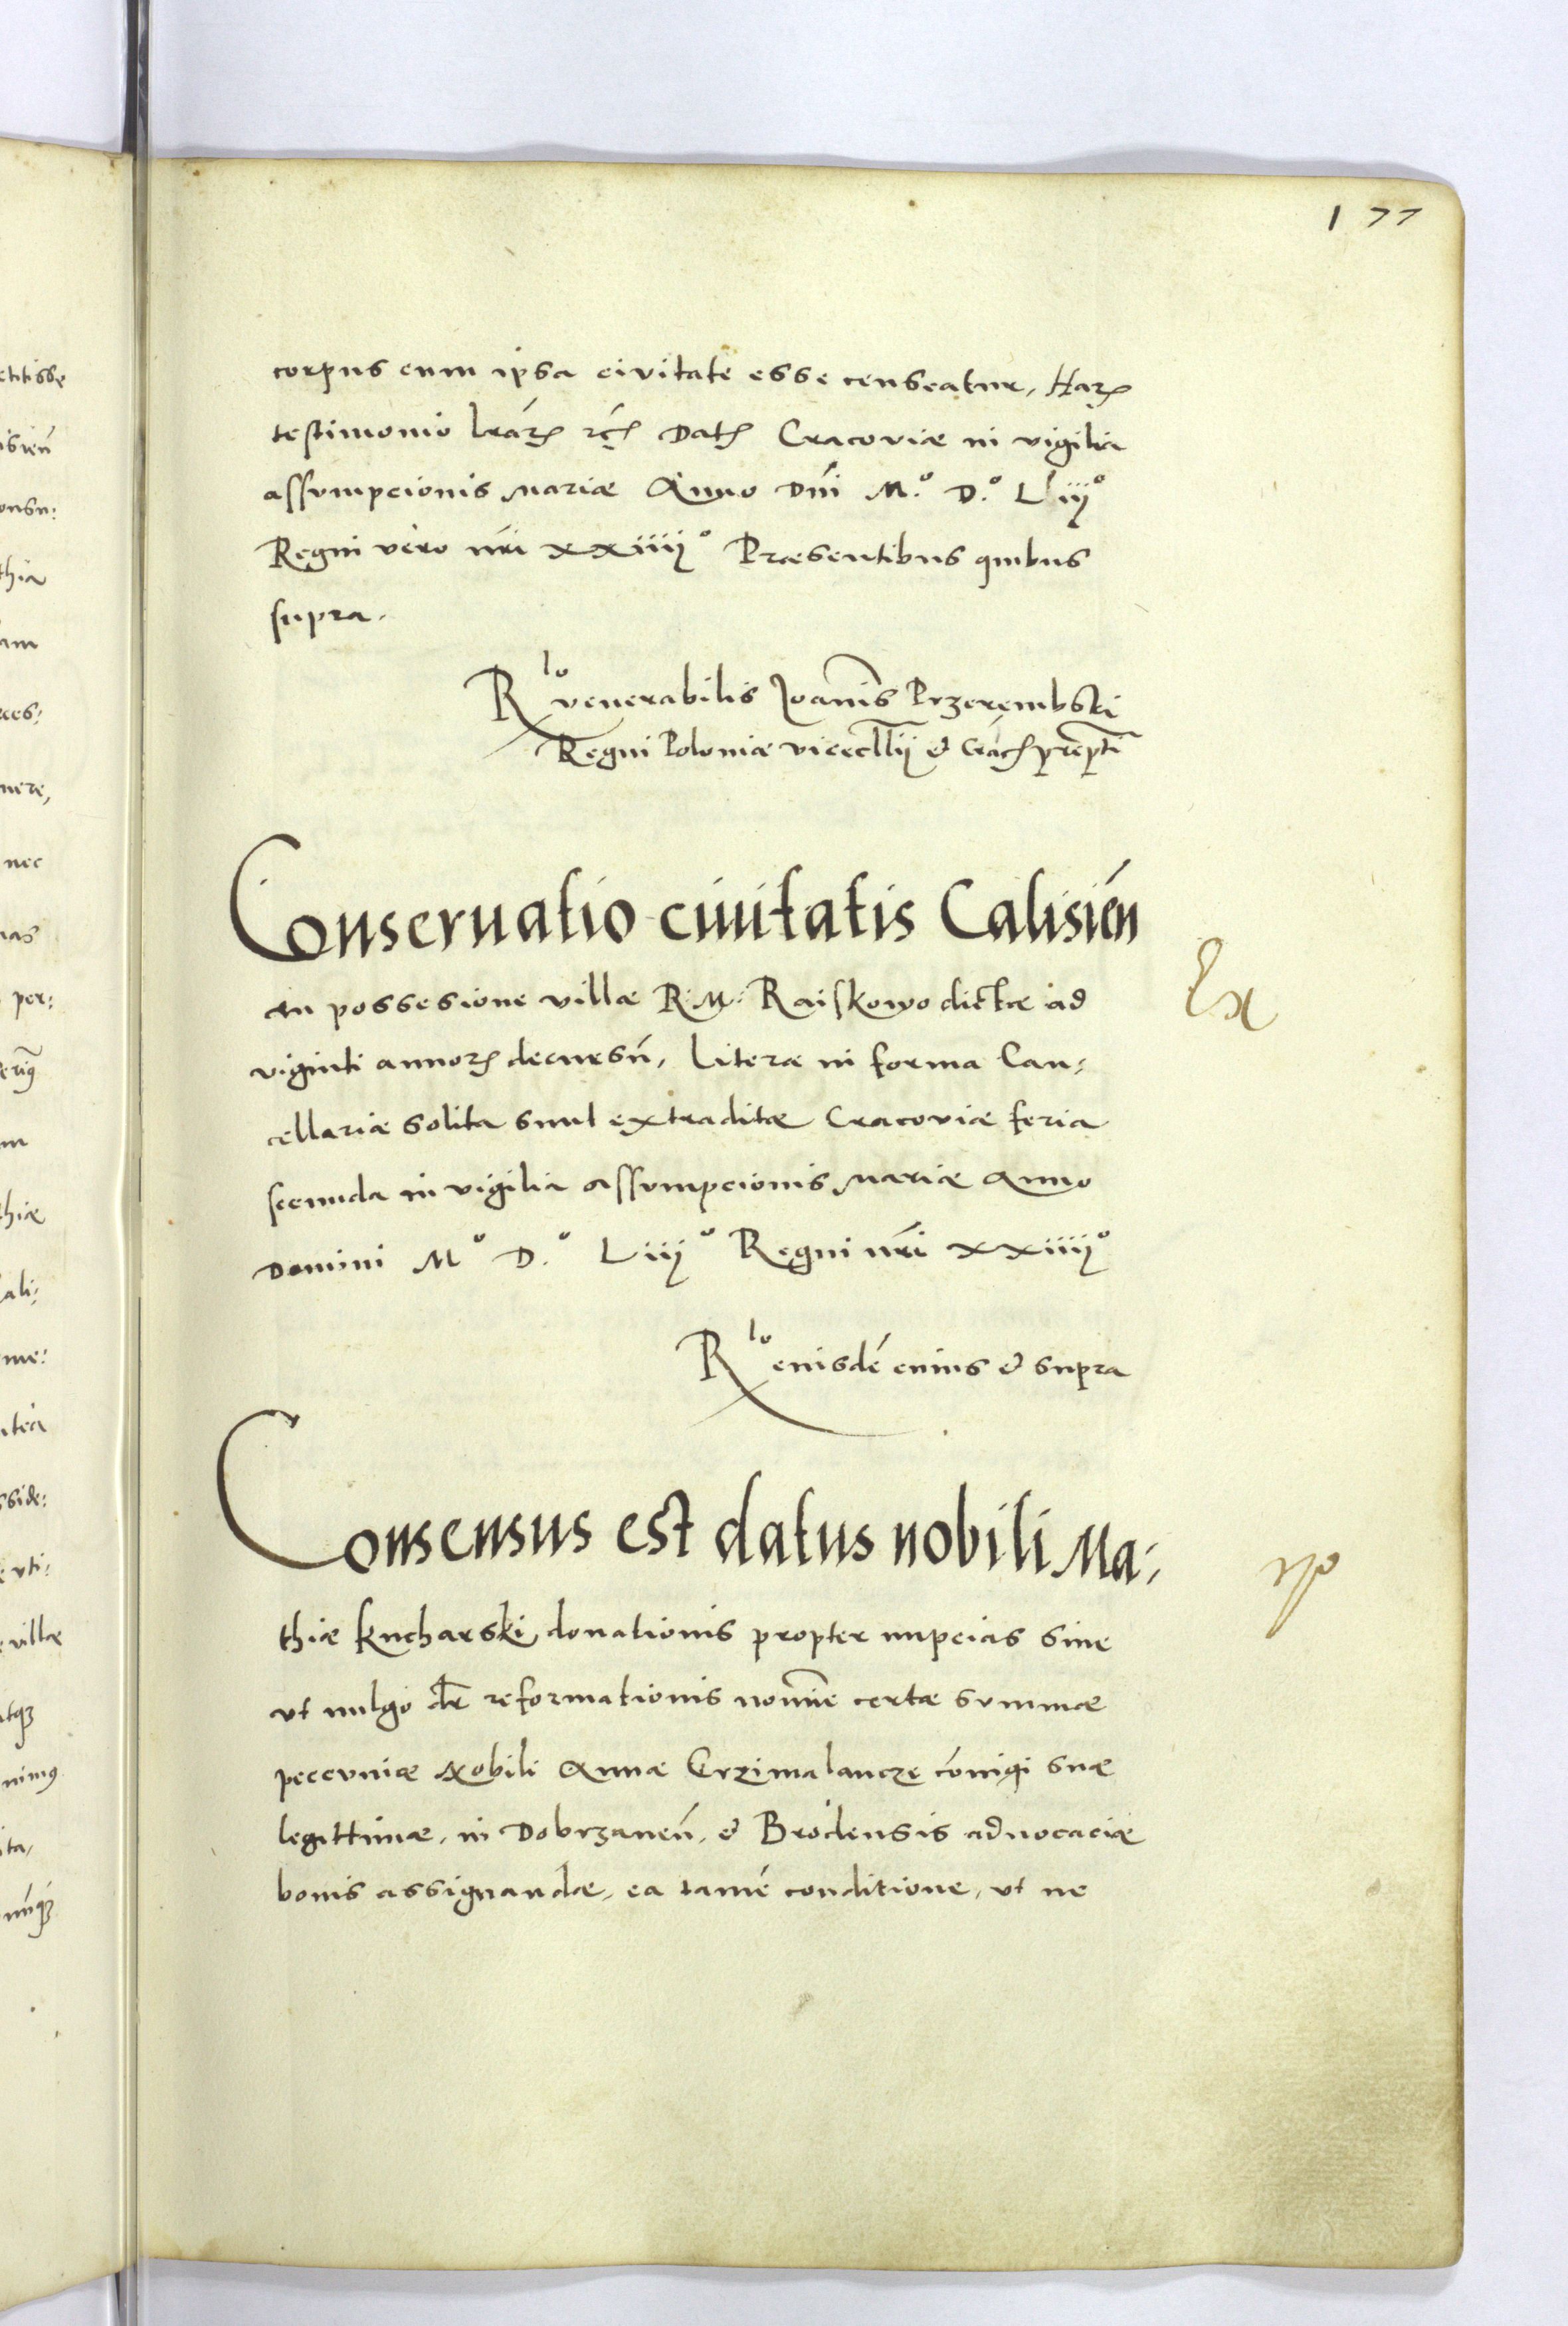 177
corpus cum ipsa civitate esse censeatur, Harꝝ
testimonio lr̃arꝝ rc̃ Datꝭ Cracoviæ in vigilia
assumpcionis Mariæ Anno Dn̄i M.º D.º Liijº
Regni vero nr̄i xxiiijº Præsentibus quibus
supra.
Rlo venerabilis Joannis Przerembski
Regni Poloniæ vicecll̄ij et
Conseruatio ciuitatis Calisień
in possesione villæ R: M: Raiskowo dictæ ad
viginti annorꝝ decursū, Literæ in forma Can:
cellariæ solita sunt extraditæ Cracoviæ feria
secunda in vigilia assumpcionis Mariæ Anno
Domini Mº D.º Liijº Regni nr̄i xxiiijº
Rlo eiusdē cuius et supra
Ex
Consensus est datus nobili Ma:
thiæ Kucharski donationis propter nupcias siue
ut uulgo dr̄ reformationis nomīne certæ summæ
pecuniæ Nobili Annæ Crzimalancze cōniugi suæ
legittimæ, in Dobrzaneń, et Brodensis aduocaciæ
bonis assignandæ, ea tamē conditione, ut ne